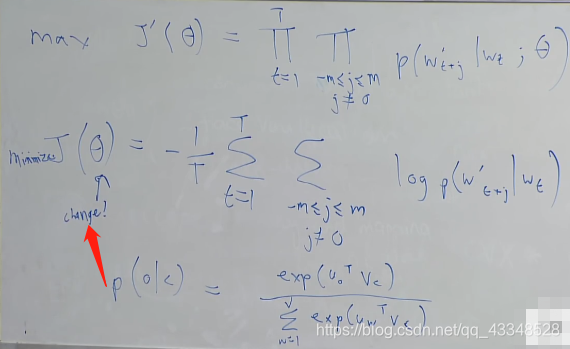 max J'(θ) = ∏_{t=1}^{T} ∏_{-m≤j≤m, j≠0} p(w'_{t+j} | w_t ; θ)
minimize J(θ) = -1/T ∑_{t=1}^{T} ∑_{-m≤j≤m, j≠0} log p(w'_{t+j} | w_t)
change!
p(o|c) = exp(u_o^T v_c) / ∑_{w=1}^{v} exp(u_w^T v_c)
https://blog.csdn.net/qq_43348528